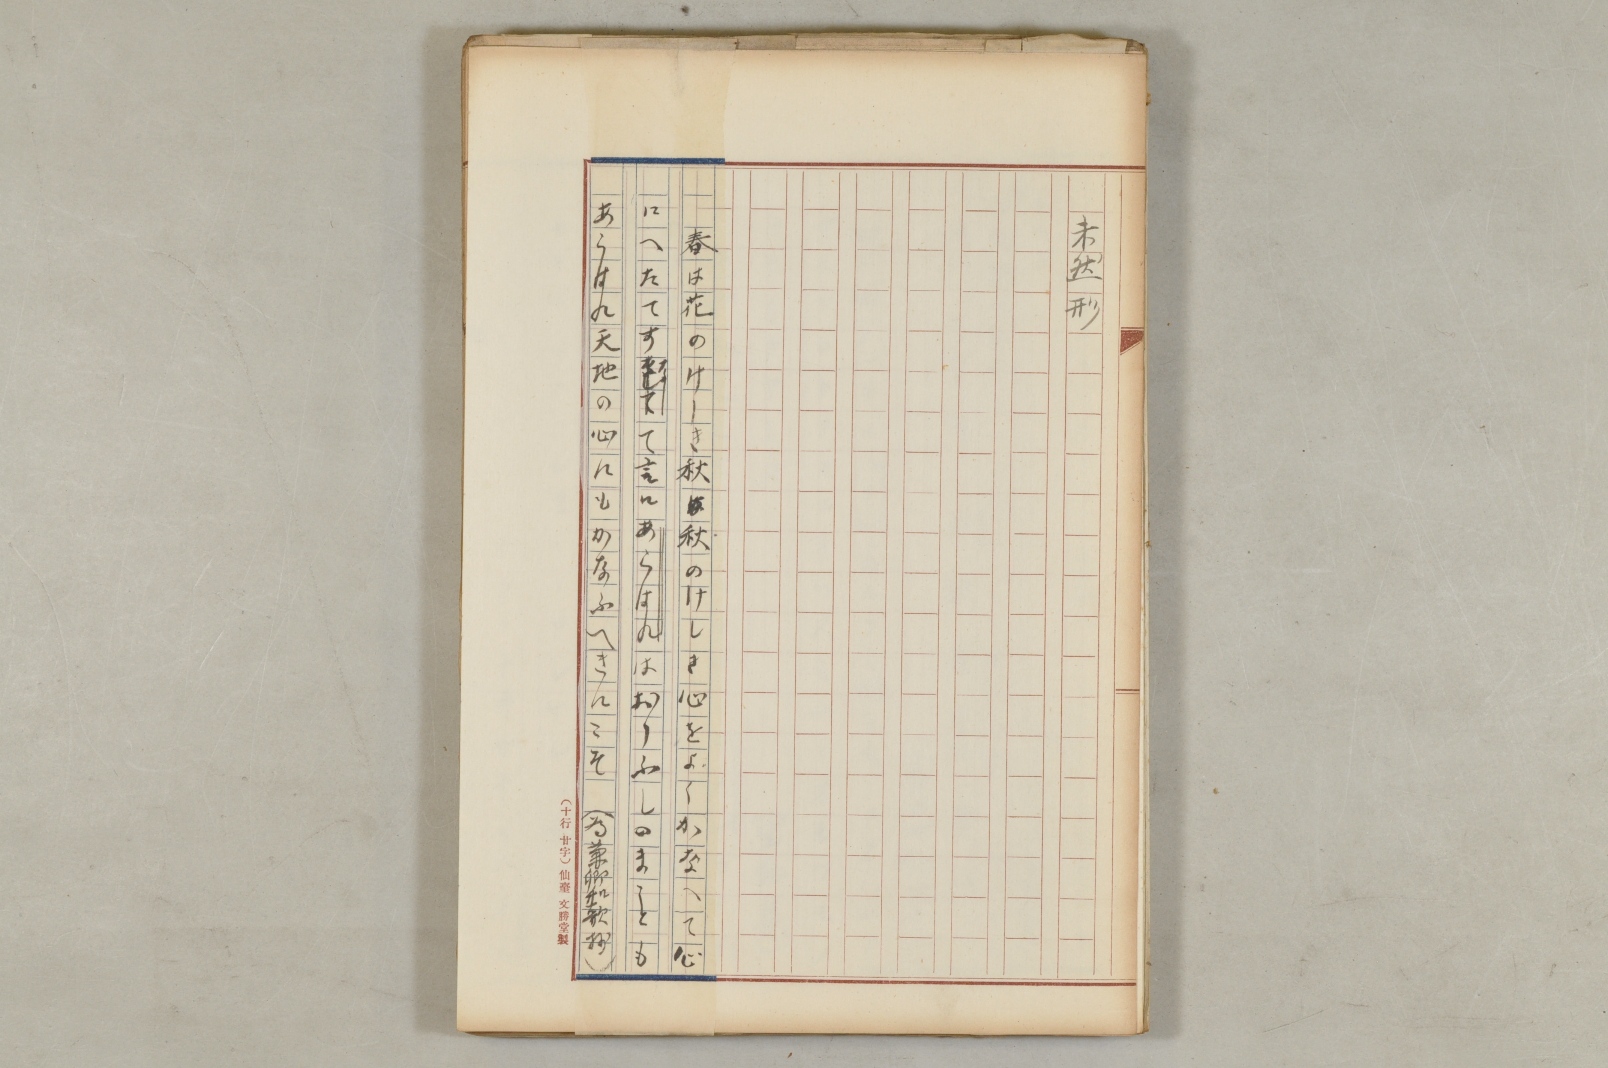 未然形
春は花のけしき秋は秋のけしき心をよくかなへて心
にへたてすなして言にあらはれはおりふしのまことも
あらはれ天地の心にもかなふへきにこそ (為兼卿和歌抄)
(十行廿字) 仙臺 文勝堂製